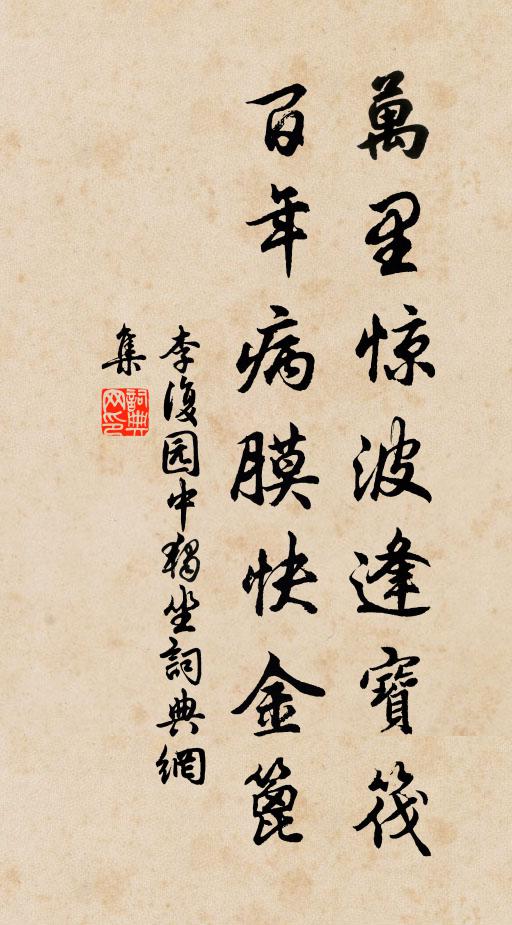 萬里惊波逢寶筏
百年病膜快金篦
李復园中獨坐詞典網
集
詞典
网印